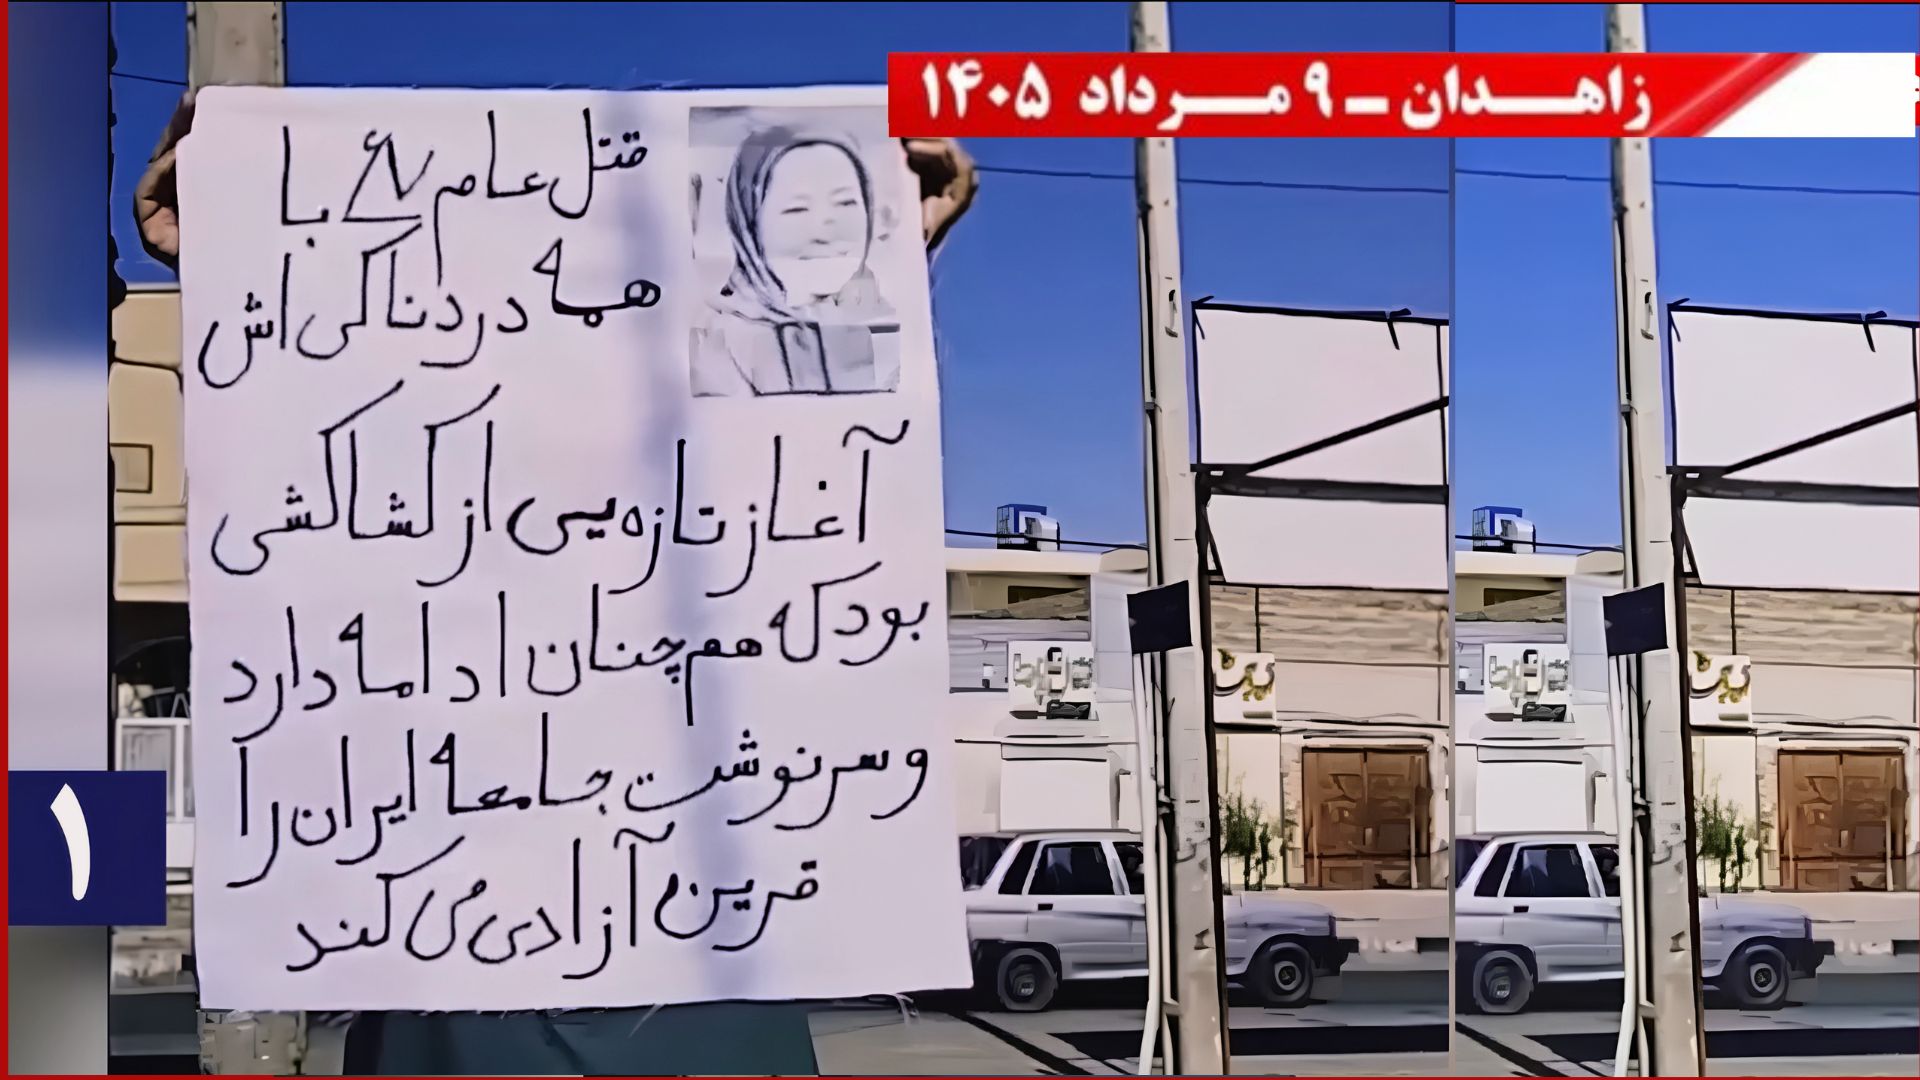 زاهدان ـ ۹ مرداد ۱۴۰۵
قتل عام ۶۷ با
همه دردناکی اش
آغاز تازه یی از کشاکشی
بود که هم چنان ادامه دارد
و سرنوشت جامعه ایران را
قرین آزادی می کند
۱